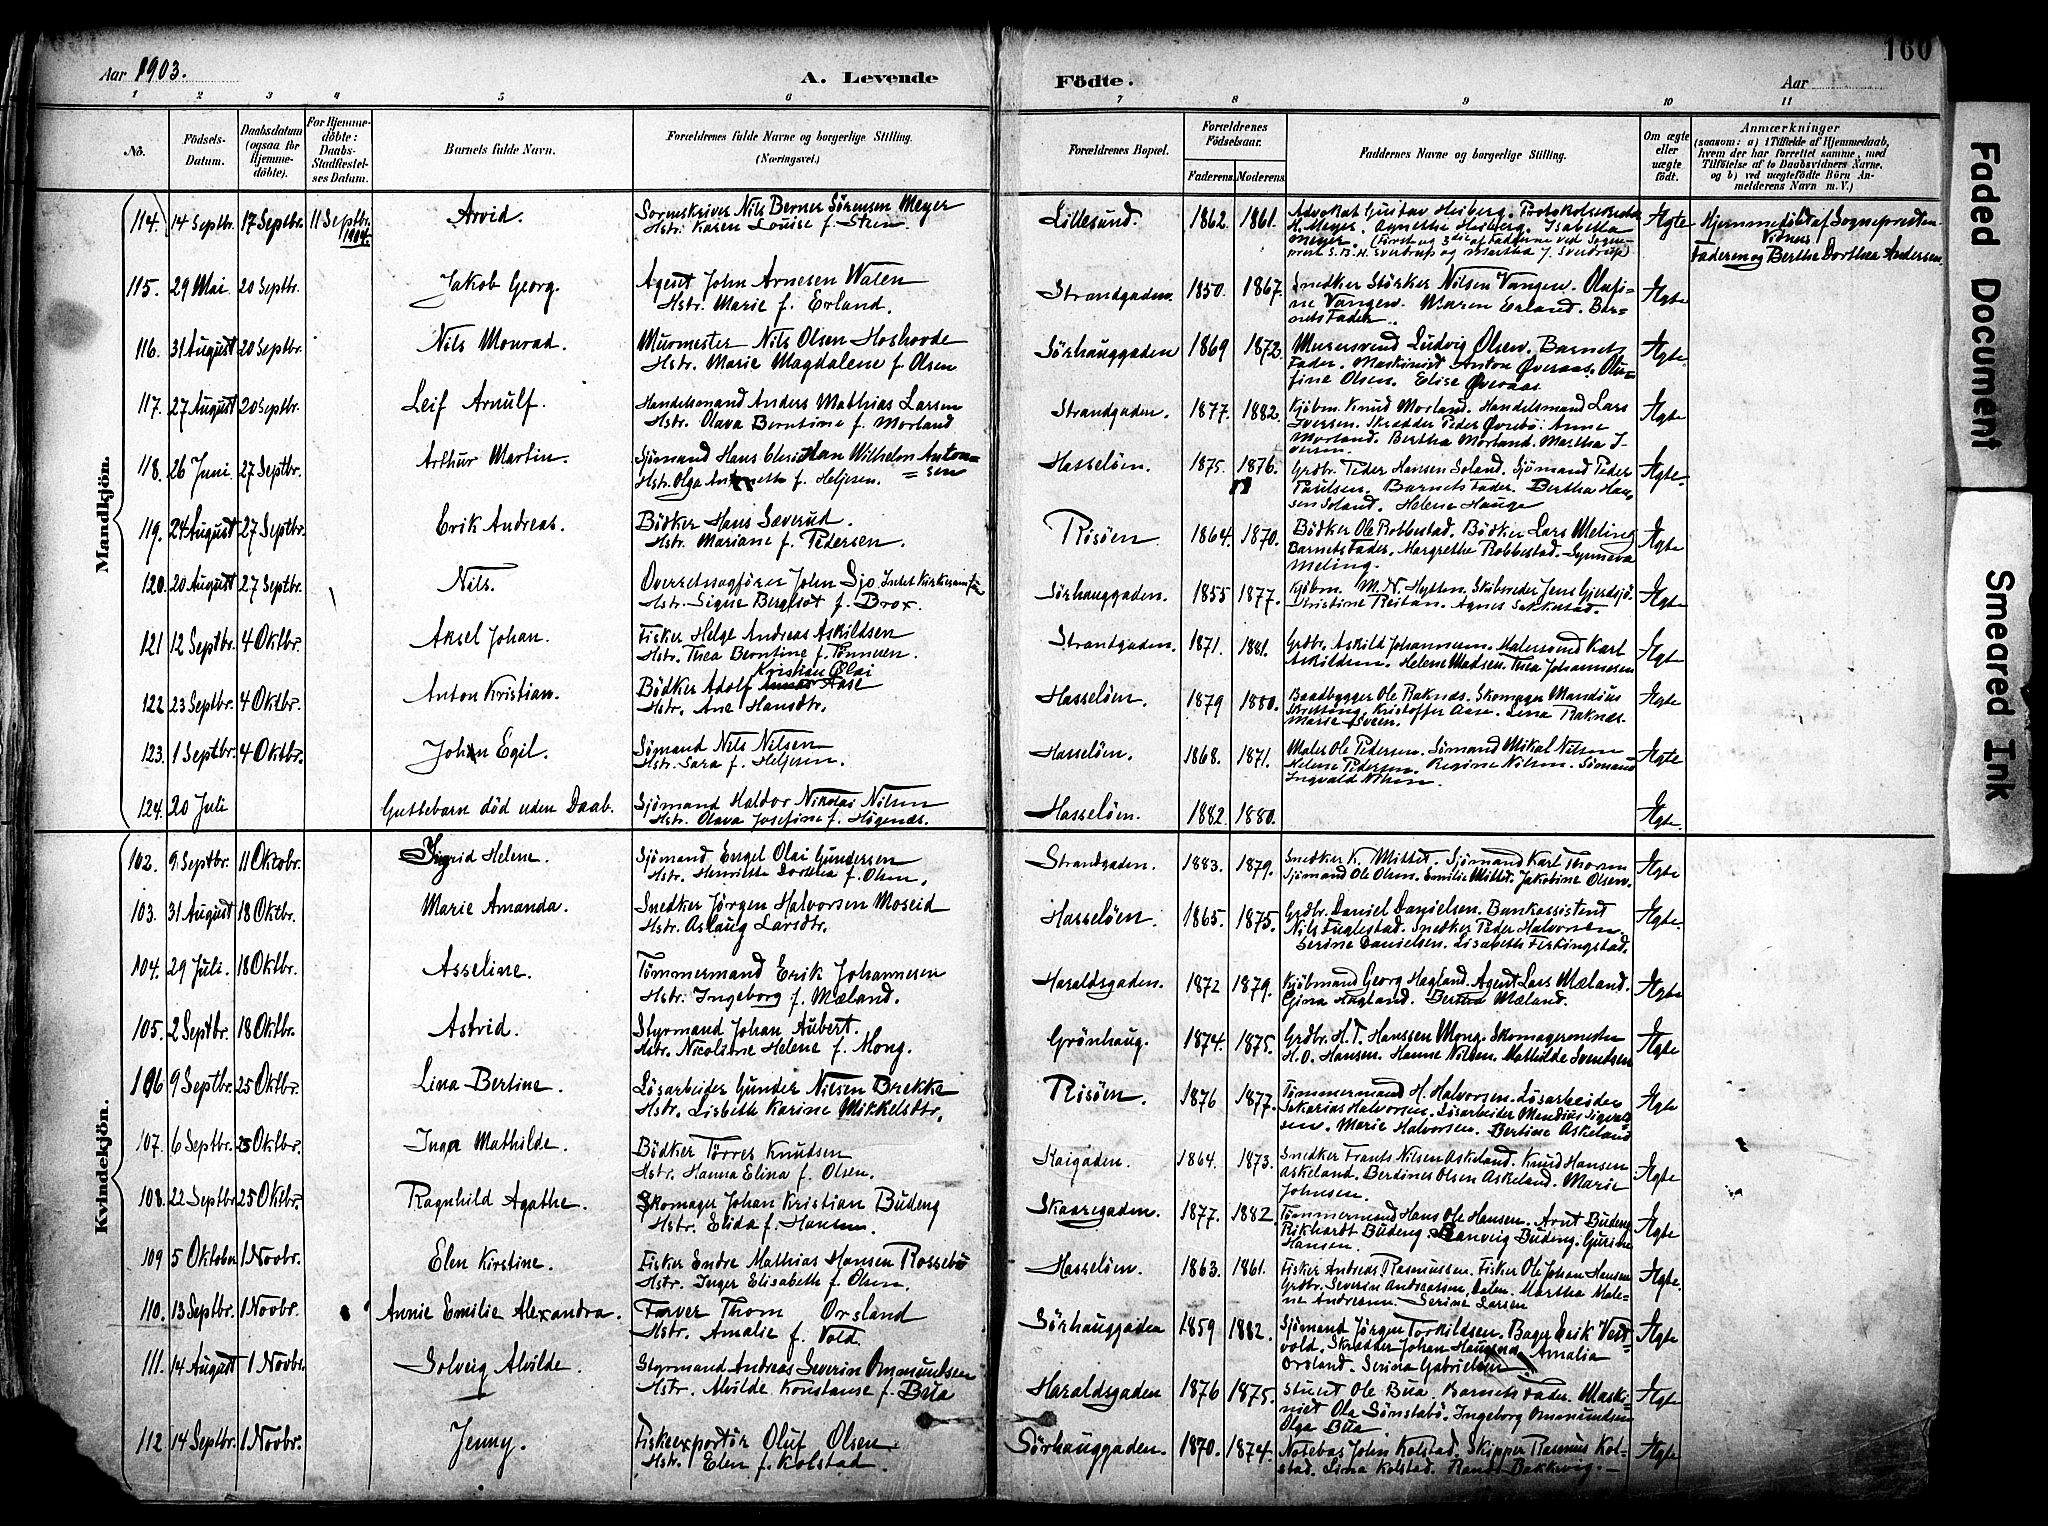 160
Aar 1903.
A. Levende Födte.
Aar
1 2 3 4 5 6 7 8 9 10 11
No.
Födsels-Datum.
Daabsdatum (ogsaa for Hjemmedöbte).
For Hjemmedöbte: Daabs-Stadfæstelses Datum.
Barnets fulde Navn.
Forældrenes fulde Navne og borgerlige Stilling. (Næringsvei.)
Forældrenes Bopæl.
Forældrenes Födselsaar.
Faderens. Moderens.
Faddernes Navne og borgerlige Stilling.
Om ægte eller uægte födt.
Anmærkninger
(saasom: a) i Tilfælde af Hjemmedaab, hvem der har forrettet samme, med Tilföielse af to Daabsvidners Navne, og b) ved uægtefödte Börn Anmelderens Navn m. V.)
Mandkjön.
114. 14 Septbr. 17 Septbr. 11 Septbr. 1904. Arvid. Sorenskriver Nils Berner Sörensen Meyer
Hstr. Karen Louise f. Steen. Lillesund. 1862. 1861. Advokat Gustav Heiberg. H. Meyer. Agnethe Heiberg. Isabella Meyer. Ægte Hjemmedöbt af Sognepresten Vidner Faderen og Berthe Dorthea Andersen.
115. 29 Mai 20 Septbr. Jakob Georg. Agent John Arnesen Waten
Hstr. Marie f. Erland. Strandgaden. 1850. 1867. Snedker Störker Nilsen Vangen. Olufine Vangen. Maren Erland. Barnets Fader. Ægte
116. 31 August 20 Septbr. Nils Monrad. Murmester Nils Olsen Hoshovde
Hstr. Marie Magdalene f. Olsen Sörhauggaden 1869 1872. Murersvend Ludvig Olsen. Barnets Fader. Maskinist Anton Øveraas. Olufine Olsen. Elise Øveraas Ægte
117. 27 August 20 Septbr. Leif Arnulf. Handelsmand Anders Mathias Larsen
Hstr. Olava Berntine f. Morland Strandgaden. 1877. 1882. Kjöbm. Knud Morland. Handelsmand Lars Iversen. Skrædder Peder Øvrebö. Anne Morland. Bertha Morland. Martha Iversen. Ægte
118. 26 Juni. 27 Septbr. Arthur Martin. Sjömand Hans Christian Wilhelm Antonsen
Hstr. Olga f. Heljesen. Hasselöen. 1875. 1876. Grdbr. Peder Hansen Soland. Sjömand Peder Paulsen. Barnets Fader. Bertha Hansen Soland. Helene Hauge Ægte
119. 24 August 27 Septbr. Erik Andreas. Bödker Hans Sæverud.
Hstr. Mariane f. Pedersen. Risöen. 1864. 1870. Bödker Ole Robbestad. Bödker Lars Meling Barnets Fader. Margrethe Robbestad. Synneva Meling. Ægte
120. 20 August 27 Septbr. Nils. Overretssagförer John Sjo
Hstr. Signe Bergliot f. Brox. Sörhauggaden. 1855 1877. Kjöbm. M. N. Hytten. Skibsreder Jens Gjerdsjö. Christine Reitan. Agnes Ægte
121 12 Septbr. 4 Oktbr. Aksel Johan. Fisker Helge Andreas Askildsen
Hstr. Thea Berntine f. Tönnesen. Strandgaden. 1871. 1881. Grdbr. Askild Johannesen. Malersvend Karl Askildsen. Helene Madsen. Thea Johannesen Ægte
122 23 Septbr. 4 Oktbr. Anton Kristian. Bödker Adolf Kristian Olai Aase
Hstr. Ane Hansdtr. Hasselöen. 1879 1880. Baadbygger Ole Raknæs. Skomager Mandius. Kristoffer Aase. Lina Raknæs. Marie Ægte
123. 1 Septbr. 4 Oktbr. Johan Egil. Sömand Nils Nilsen
Hstr. Sara f. Heljesen. Hasselöen. 1868. 1871. Maler Ole Pedersen. Sömand Mikal Nilsen Helene Pedersen. Regine Nilsen. Sömand Ingvald Nilsen. Ægte
124. 20 Juli Guttebarn död uden Daab. Sjömand Haldor Nikolai Nilsen
Hstr. Olava Josefine f. Högenæs. Hasselöen. 1882 1880. Ægte.
Kvindekjön.
102. 9 Septbr. 11 Oktobr. Ingrid Helene. Sjömand Engel Olai Gundersen
Hstr. Henriette Dorthea f. Olsen. Strandgaden. 1883. 1879. Snedker K. Mittet. Sjömand Karl Thorsen Sjömand Ole Olsen. Emilie Mittet. Jakobine Olsen. Ægte
103. 31 August 18 Oktbr. Marie Amanda. Snedker Jörgen Halvorsen Moseid
Hstr. Aslaug Larsdtr. Hasselöen. 1865. 1875. Grdbr. Daniel Danielsen. Bankassistent Nils Fuglestad. Snedker Peder Halvorsen. Serine Danielsen. Lisabeth Fistingstad. Ægte.
104. 29 Juli. 18 Oktbr. Asseline. Tömmermand Erik Johannesen
Hstr. Ingeborg f. Mæland. Haraldsgaden. 1872 1879. Kjöbmand Georg Hagland. Agent Lars Mæland. Gina Hagland. Bertha Mæland. Ægte
105. 2 Septbr. 18 Oktbr. Astrid. Styrmand Johan Aubert.
Hstr. Nicoline Helene f. Mong. Grönhaug. 1874. 1875. Grdbr. H. T. Hanssen Mong. Skomagermester H. O. Hansen. Hanne Nilsen. Mathilde Svendsen Ægte
106 9 Septbr. 25 Oktbr. Lina Bertine. Lösarbeider Gunder Nilsen Brekke
Hstr. Lisbeth Karine Mikkelsdtr. Risöen. 1876 1877. Tömmermand H. Halvorsen. Lösarbeider Sakarias Halvorsen. Lösarbeider Mandius Sigvaldsen. Marie Halvorsen. Bertine Askeland Ægte
107. 6 Septbr. 25 Oktbr. Inga Mathilde. Bödker Törres Knudsen
Hstr. Hanna Elina f. Olsen. Kaigaden. 1864. 1873. Snedker Frants Nilsen Askeland. Knud Hansen Askeland. Berdines Olsen Askeland. Marie Johnsen. Ægte
108. 22 Septbr 25 Oktbr. Ragnhild Agathe. Skomager Johan Kristian Budeng
Hstr. Elida f. Hansen Skaaregaden. 1877. 1882. Tömmermand Hans Ole Hansen. Arnt Budeng Rikhardt Budeng. Ranveig Budeng. Gurine Hansen. Ægte
109 5 Oktober 1 Novbr. Elen Kirstine. Fisker Endre Mathias Hansen Rossebö
Hstr. Inger Elisabeth f. Olsen. Hasselöen. 1863. 1861. Fisker Andreas Rasmussen. Fisker Ole Johan Hansen Grdbr. Severin Andreassen Dalen. Martha Malene Andreasen. Serine Larsen Ægte
110. 13 Septbr. 1 Novbr. Annie Emilie Alexandra. Farver Thom Orsland
Hstr. Amalie f. Vold. Sörhauggaden 1859 1882. Sjömand Jörgen Torkildsen. Bager Erik Vestvold. Skrædder Johan Haugen. Amalia Orsland. Serina Gabrielsen Ægte
111. 14 August 1 Novbr. Solveig Alvilde. Styrmand Andreas Severin Omundsen
Hstr. Alvilde Konstanse f. Bua Haraldsgaden 1876 1875. Stuert Ole Bua. Barnets Fader. Maskinist Ole Sönstabö. Ingeborg Omundsen Olga Bua Ægte
112 14 Septbr. 1 Novbr. Jenny. Fiskeexportör Oluf Olsen
Hstr. Elen f. Kolstad. Sörhauggaden. 1870. 1874. Notebas John Kolstad. Skipper Rasmus Kolstad. Lina Kolstad. Randi Bakkevig. Ægte
Faded Document
Smeared Ink